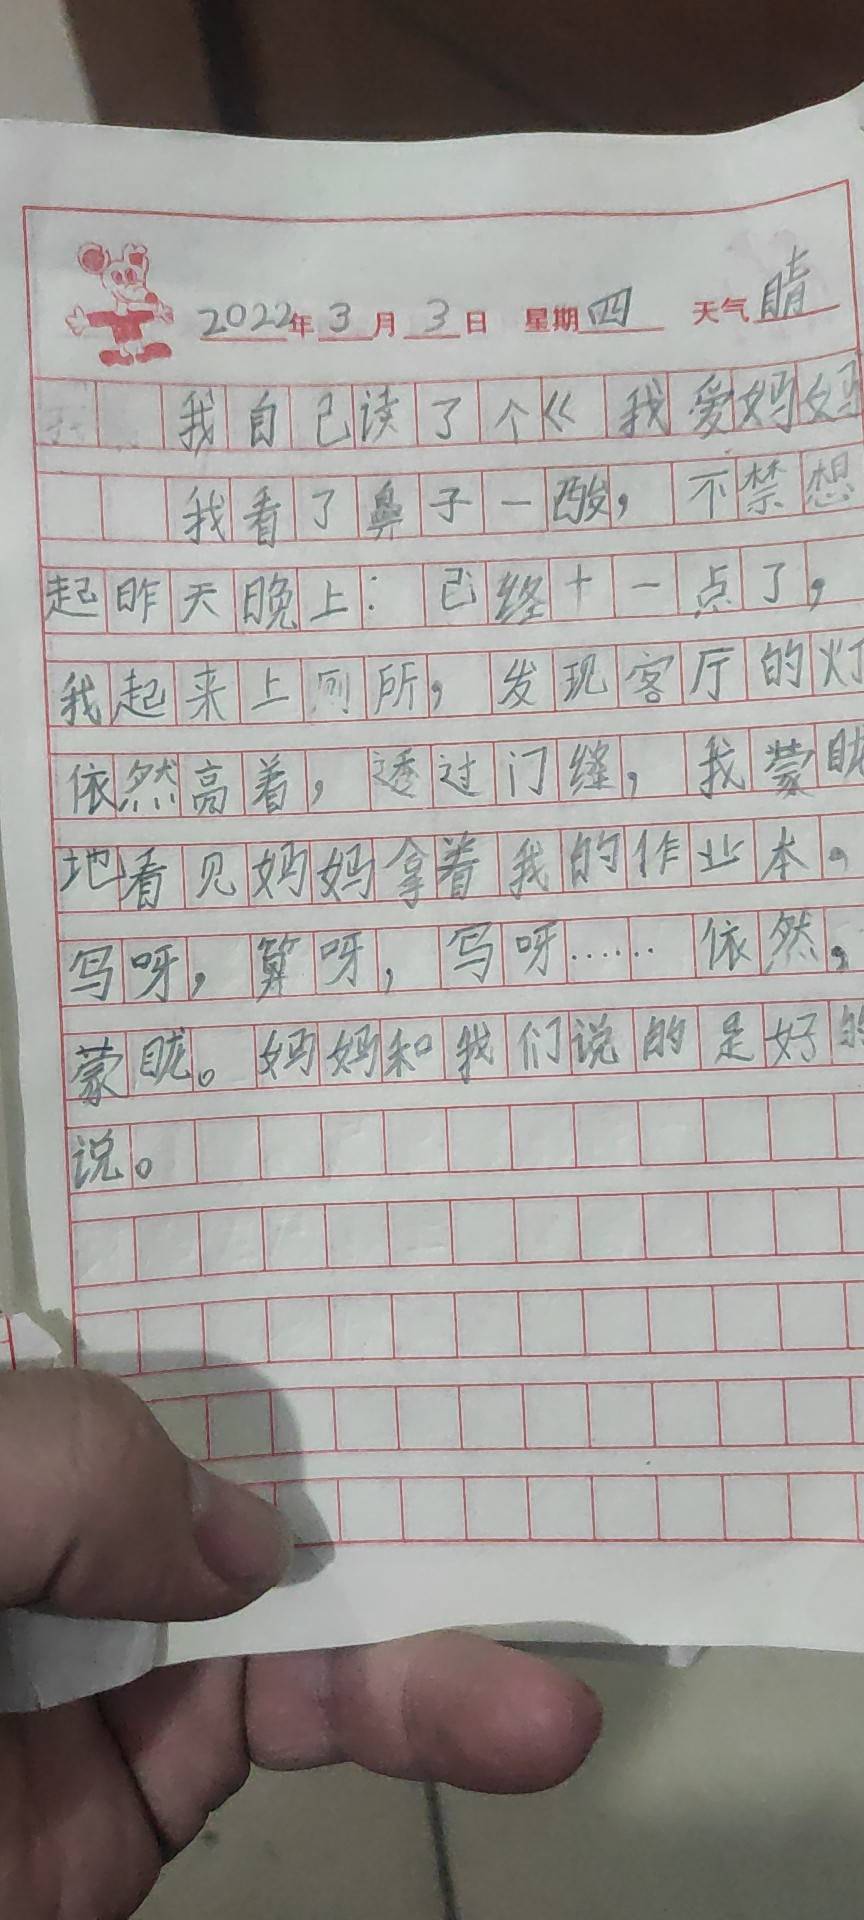 2022年3月3日 星期四 天气晴
我自己读了个《我爱妈妈
我看了鼻子一酸，不禁想
起昨天晚上：已终十一点了，
我起来上厕所，发现客厅的灯
依然高着，透过门缝，我蒙眬
地看见妈妈拿着我的作业本。
写呀，算呀，写呀……依然，
蒙眬。妈妈和我们说的是好的
说。